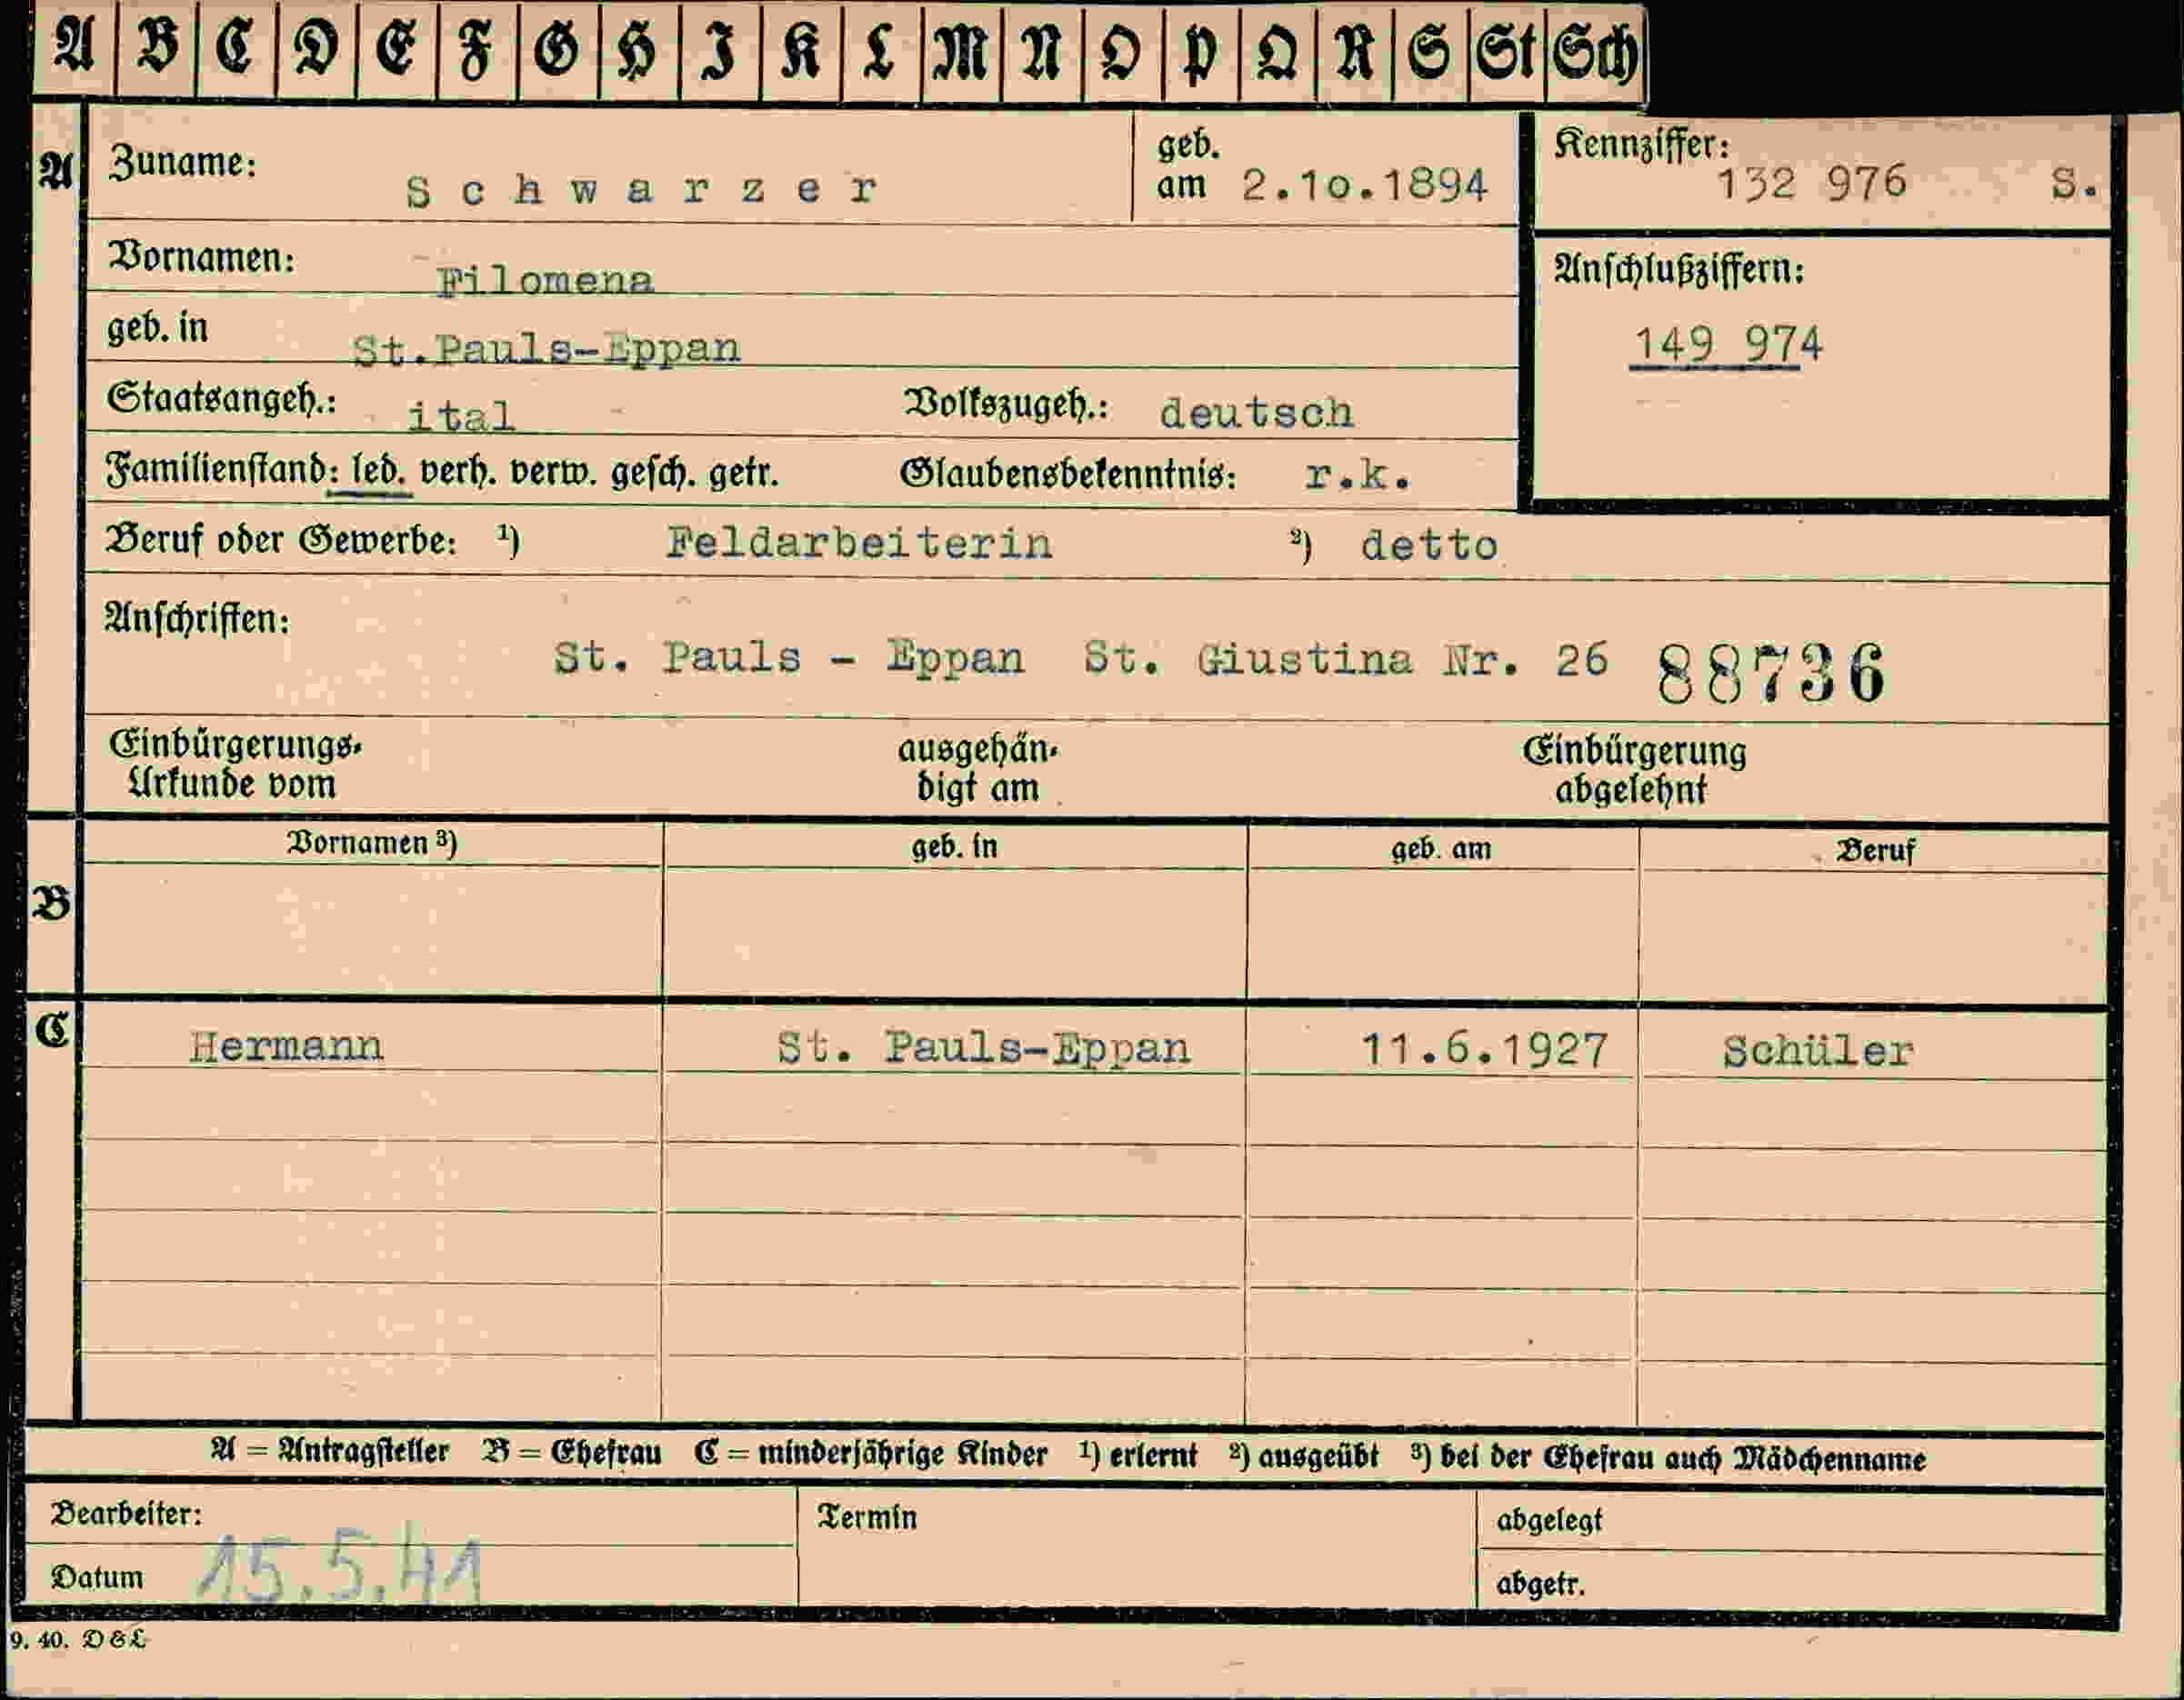 A B C D E F G H I K L M N O P Q R S St Sch
A Zuname: Schwarzer geb. am 2.10.1894 Kennziffer: 132 976 S.
Vornamen: Filomena
Anschlußziffern:
geb. in St.Pauls-Eppan
149 974
Staatsangeh.: ital Volkszugeh.: deutsch
Familienstand: led. verh. verw. gesch. getr. Glaubensbekenntnis: r.k.
Beruf oder Gewerbe: ¹) Feldarbeiterin ²) detto
Anschriften:
St. Pauls - Eppan St. Giustina Nr. 26 88736
Einbürgerungs- ausgehän- Einbürgerung
Urkunde vom digt am abgelehnt
Vornamen ³) geb. in geb. am Beruf
B
C Hermann St. Pauls-Eppan 11.6.1927 Schüler
A = Antragsteller B = Ehefrau C = minderjährige Kinder ¹) erlernt ²) ausgeübt ³) bei der Ehefrau auch Mädchenname
Bearbeiter: Termin abgelegt
Datum 15.5.41 abgetr.
9. 40. D & L